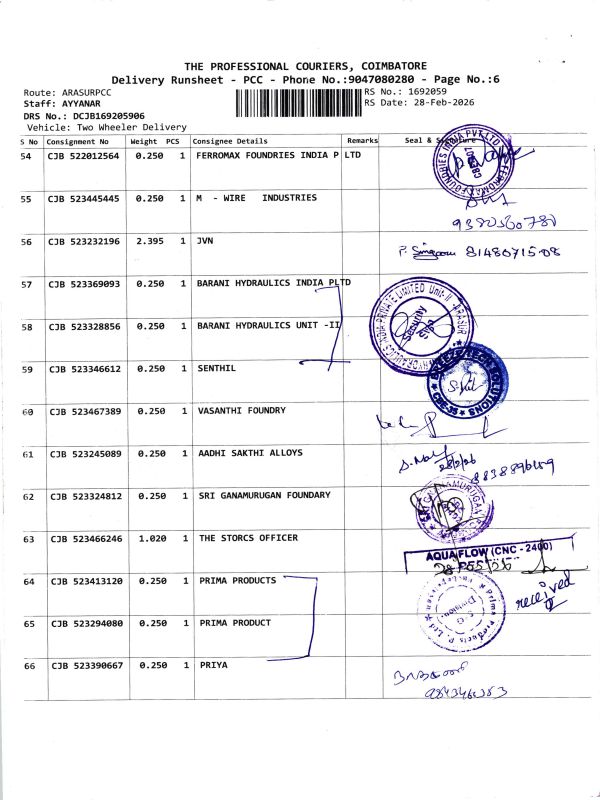 THE PROFESSIONAL COURIERS, COIMBATORE
Delivery Runsheet - PCC - Phone No.:9047080280 - Page No.:6
Route: ARASURPCC
Staff: AYYANAR
DRS No.: DCJB169205906
Vehicle: Two Wheeler Delivery
RS No.: 1692059
RS Date: 28-Feb-2026
S No Consignment No Weight PCS Consignee Details Remarks Seal & Signature
54 CJB 522012564 0.250 1 FERROMAX FOUNDRIES INDIA P LTD
55 CJB 523445445 0.250 1 M - WIRE INDUSTRIES
56 CJB 523232196 2.395 1 JVN 8148071508
57 CJB 523369093 0.250 1 BARANI HYDRAULICS INDIA PLTD
58 CJB 523328856 0.250 1 BARANI HYDRAULICS UNIT -II
Security
59 CJB 523346612 0.250 1 SENTHIL
60 CJB 523467389 0.250 1 VASANTHI FOUNDRY
61 CJB 523245089 0.250 1 AADHI SAKTHI ALLOYS
28/2/26
62 CJB 523324812 0.250 1 SRI GANAMURUGAN FOUNDARY
63 CJB 523466246 1.020 1 THE STORCS OFFICER
AQUA FLOW (CNC - 2400)
64 CJB 523413120 0.250 1 PRIMA PRODUCTS
received
65 CJB 523294080 0.250 1 PRIMA PRODUCT
66 CJB 523390667 0.250 1 PRIYA